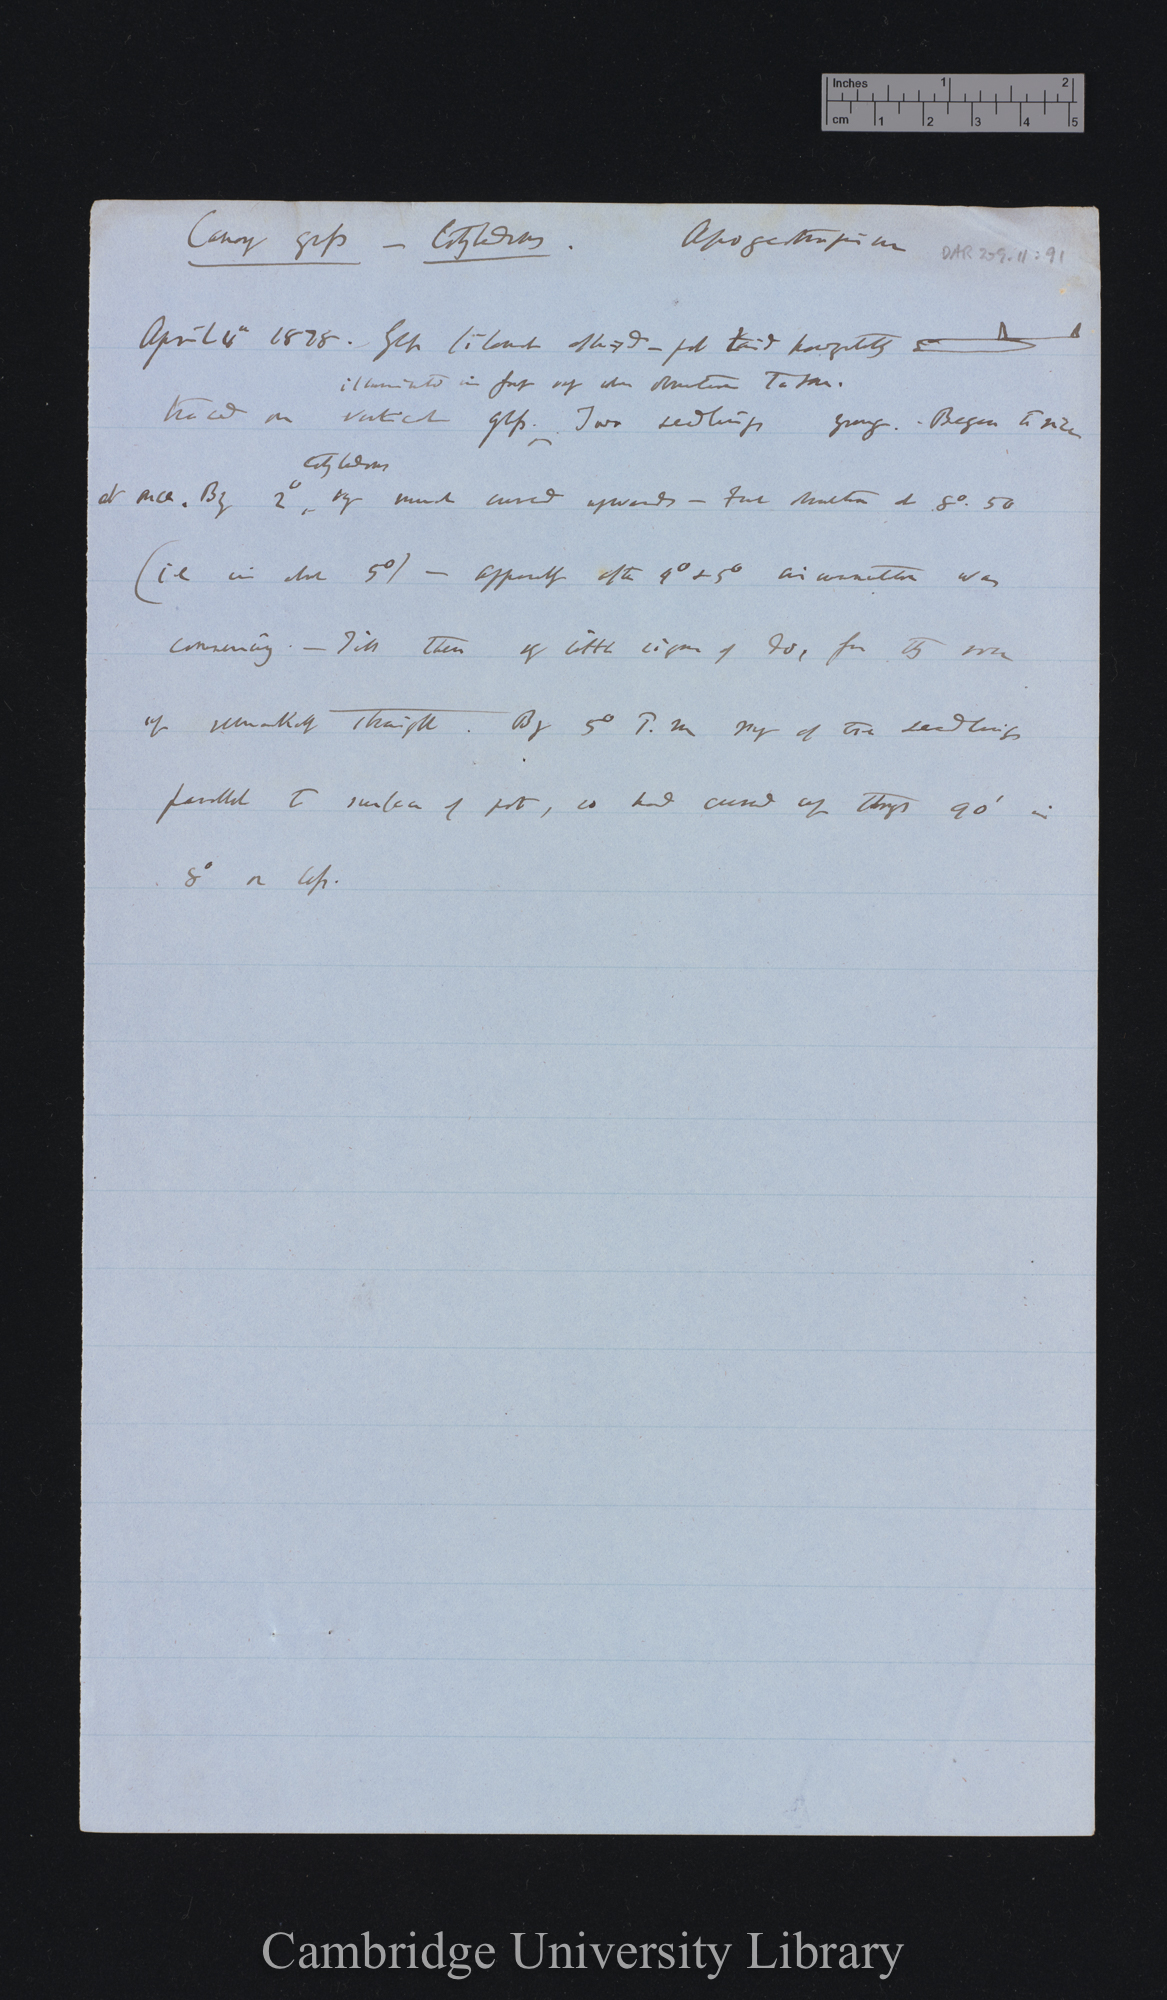 Inches 1 2
cm 1 2 3 4 5
Canary grass — Cotyledons. Apogeotropism DAR 209.11:91
April 4th 1878. Glass filament affixed — pot laid horizontally
illuminated in front only when observations taken.
traced on vertical glass. Two seedlings young. - Began to rise
cotyledons
at once. By 2° only much curved upwards — First observation at 8°. 50
(ie in about 5°) — apparently after 4° or 5° circumnutation was
commencing. — Till then only little signs of for they rose
up remarkably straight. By 5° P.m of the seedlings
parallel to surface of pot, so had curved up through 90° in
8° or less.
Cambridge University Library